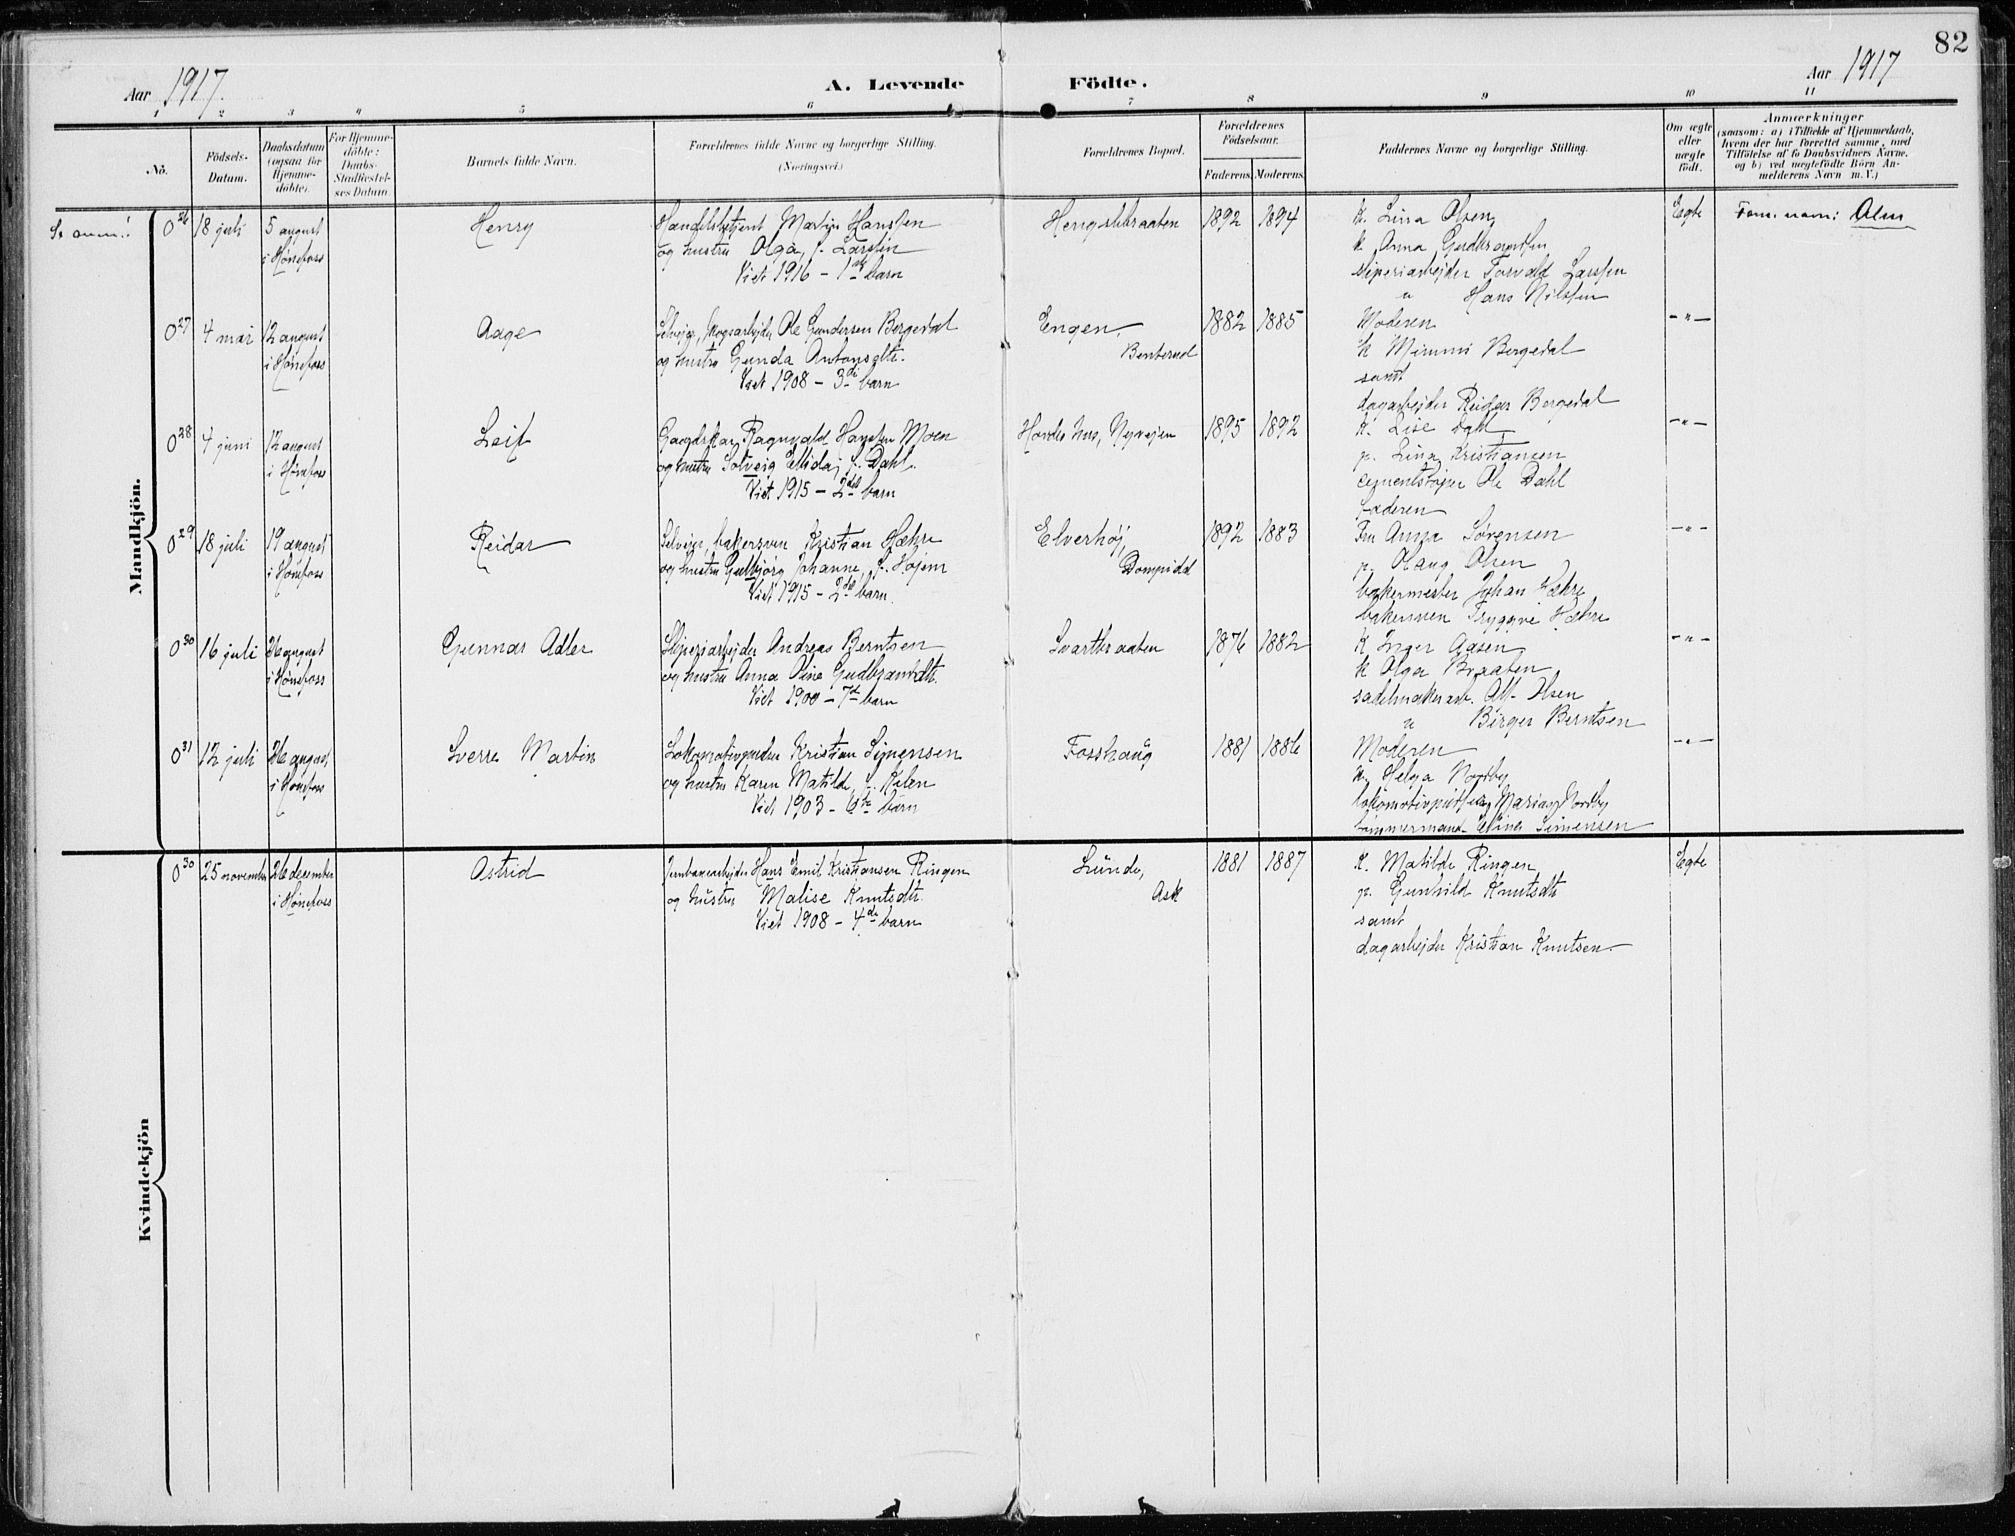 82
Aar 1917.
A. Levende Födte.
Aar 1917
1 2 3 4 5 6 7 8 9 10 11
No.
Födsels-
Datum.
Daabsdatum
(ogsaa for
Hjemme-
döbte).
For Hjemme-
döbte:
Daabs-
Stadfæstel-
ses Datum.
Barnets fulde Navn.
Forældrenes fulde Navne og borgerlige Stilling.
(Næringsvei.)
Forældrenes Bopæl.
Forældrenes
Födselsaar.
Faderens. Moderens.
Faddernes Navne og borgerlige Stilling.
Om ægte
eller
uægte
födt.
Anmærkninger
(saasom: a) i Tilfælde af Hjemmedaab,
hvem der har forrettet samme, med
Tilföielse af to Daabsvidners Navne,
og b) ved uægtefödte Börn An-
melderens Navn m. V.)
Mandkjön.
Se anm.!
0 26 18 juli
5 august
i Hönefoss
Henry
Handelsbetjent Martin Hanssen
og hustru Olga, f. Larssen
Viet 1916 - 1ste barn
Hengslebraaten
1892 1894
k. Lina Olsen
k. Anna Gudbrandsen
sliperiarbejder Torvald Larssen
" Hans Nilssen
Egte
Fam. navn: Alm
0 27 4 mai
12 august
i Hönefoss
Aage
Selveier, skogsarbejder Ole Gundersen Bergedal
og hustru Gunda Antonsdtr.
Viet 1908 - 3di barn
Engen,
Benterud
1882 1885
Moderen
k Mimmi Bergedal
samt
dagarbejder Reidar Bergedal
- " -
0 28 4 juni
12 august
i Hönefoss
Leif
Ragnvald Hansen Moen
og hustru Solveig Ellida, f. Dahl.
Viet 1915 - 2det barn
Hovdes hus, Nyvejen
1895 1892
k. Lise Dahl
p. Lina Kristiansen
cementstøper Ole Dahl
Faderen
- " -
0 29 18 juli
19 august
i Hönefoss
Reidar
Selveier, bakersven Kristian Hæhre
og hustru Gudbjørg Johanne, f. Højem
Viet 1915 - 2det barn.
Elverhøj,
1892 1883
Fru Anna Sørensen
p. Olaug Olsen
bakermester Johan Hæhre
bakersven Tryggve Hæhre
- " -
0 30 16 juli
26 august
i Hönefoss
Gunnar Adler
Sliperiarbejder Andreas Berntsen
og hustru Anna Oline Gudbrandsdtr.
Viet 1900 - 7de barn
Svartbraaten
1876 1882
K Inger Aasen
k Olga Braaten
sadelmakerarb. Alf Olsen
" Birger Berntsen
- " -
0 31 12 juli
26 august
i Hönefoss
Sverre Martin
Lokomotivpudser Kristian Simensen
og hustru Karen Matilde, f. Kilen
Viet 1903 - 6te barn
Fosshaug
1881 1886
Moderen
k. Helga Nordby
lokomotivpudser Marius Nordby
tømmermand Simensen
- " -
Kvindekjön
0 30 25 november
26 december
i Hönefoss
Astrid
Jernbanearbejder Hans Emil Kristiansen Ringen
og hustru Malise Knutsdtr.
Viet 1908 - 4de barn
Lunde,
Ask
1881 1887
K. Matilde Ringen
p. Gunhild Knutsdtr
samt
dagarbejder Kristian Knutsen.
Egte